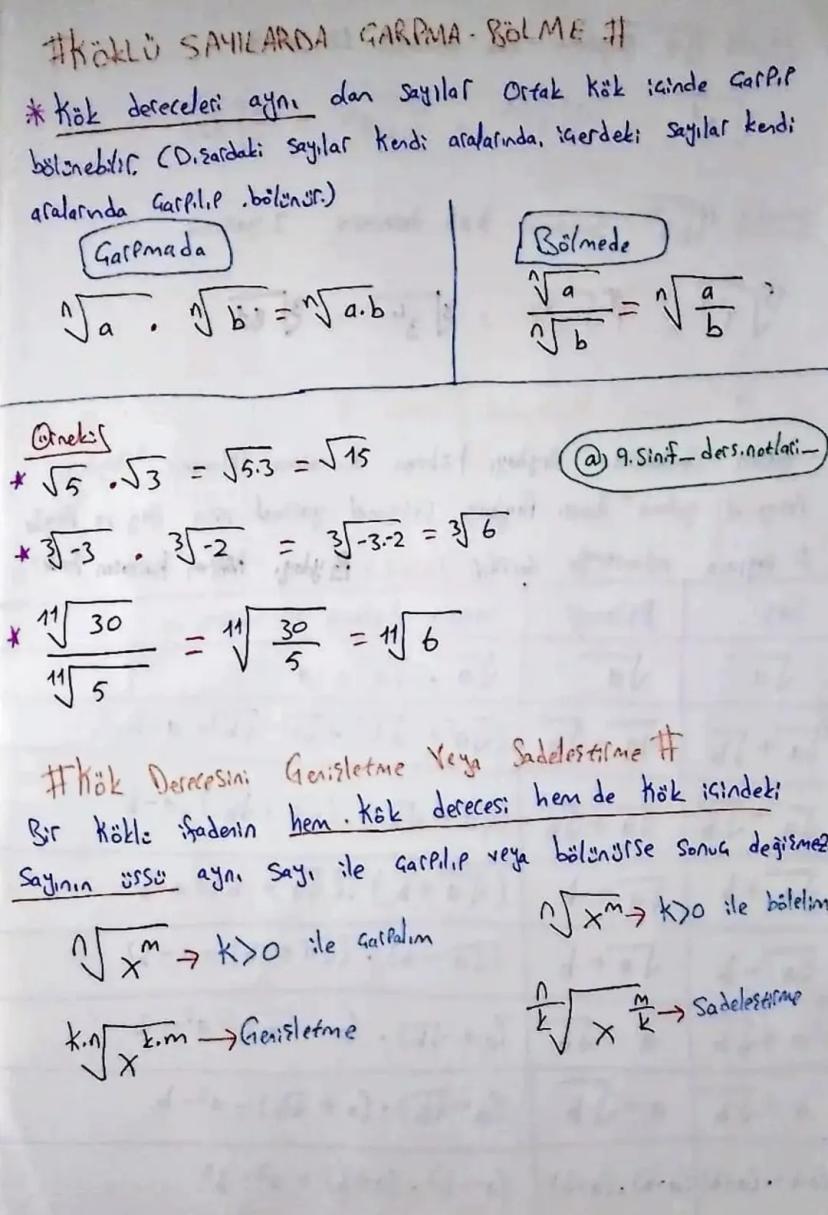 #KÖKLÜ SAYILARDA ÇARPMA - BÖLME #
* Kök dereceleri aynı olan sayılar ortak kök içinde çarpıp
bölünebilir. (Dışardaki sayılar kendi aralarında, içerdeki sayılar kendi
aralarında çarpılıp bölünür.)
Çarpmada
ⁿ√a . ⁿ√b = ⁿ√a.b
Bölmede
ⁿ√a / ⁿ√b = ⁿ√(a/b)
Örnek;
@ 9.Sinif_ders.notlari_
* √5 . √3 = √5.3 = √15
* ³√-3 . ³√-2 = ³√-3.-2 = ³√6
* ¹¹√30 / ¹¹√5 = ¹¹√(30/5) = ¹¹√6
#Kök Derecesini Genişletme Veya Sadeleştirme #
Bir köklü ifadenin hem kök derecesi hem de kök içindeki
sayının üssü aynı sayı ile çarpılıp veya bölünürse sonuç değişmez
ⁿ√xᵐ → k>0 ile çarpalım
ᵏ·ⁿ√xᵏ·ᵐ → Genişletme
ⁿ√xᵐ → k>0 ile bölelim
n/k√x^(m/k) → Sadeleştirme